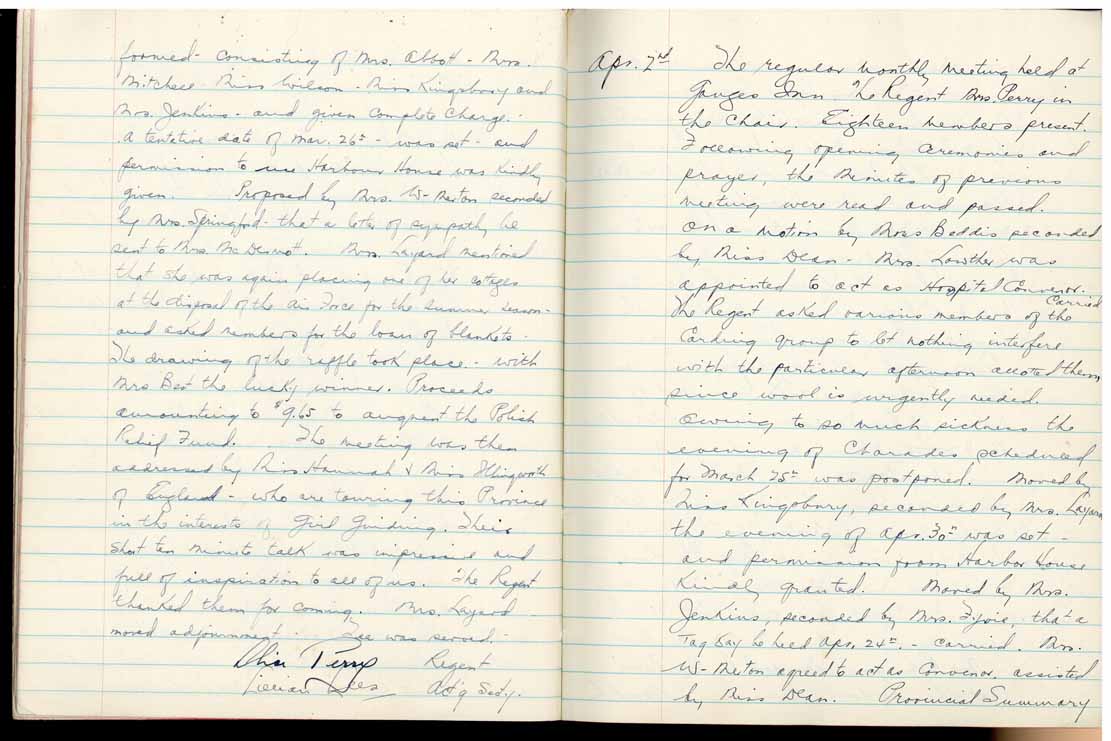 formed - consisting of Mrs. Abbott - Mrs.
Mitchell Miss Wilson - Miss Kingsbury and
Mrs. Jenkins - and given complete charge. -
A tentative date of Mar. 26th - was set - and
permission to use Harbour House was kindly
given. Proposed by Mrs. W- seconded
by Mrs. Springford - that a letter of sympathy be
sent to Mrs. McDermot. Mrs. Layard mentioned
that she was again placing one of her cottages
at the disposal of the Air Force for the summer season -
and asked members for the loan of blankets.
The drawing of the raffle took place - with
Mrs Best the lucky winner. Proceeds
amounting to $9.65 to augment the Polish
Relief Fund. The meeting was then
addressed by Miss Hannah & Miss Illingworth
of England - who are touring this Province
in the interests of Girl Guiding. Their
short ten minute talk was impressive and
full of inspiration to all of us. The Regent
thanked them for coming. Mrs. Layard
moved adjournment. Tea was served. -
Perry Regent
Lillian Act'g Sec'y.
Apr. 2nd The regular monthly meeting held at
Ganges Inn The Regent Mrs. Perry in
the Chair. Eighteen members present.
Following opening ceremonies and
prayer, the minutes of previous
meeting were read and passed.
On a motion by Miss Beddis seconded
by Miss Dean - Mrs. Lowther was
appointed to act as Hospital Convenor.
Carried
The Regent asked various members of the
Carding group to let nothing interfere
with the particular afternoon alloted them
since wool is urgently needed.
Owing to so much sickness the
evening of Charades scheduled
for March 25th was postponed. Moved by
Miss Kingsbury, seconded by Mrs. Layard
the evening of Apr. 30th was set -
and permission from Harbor House
kindly granted. Moved by Mrs.
Jenkins, seconded by Mrs. that a
Tag Day be held Apr. 24th. - carried. Mrs.
W- agreed to act as Convenor, assisted
by Miss Dean. Provincial Summary